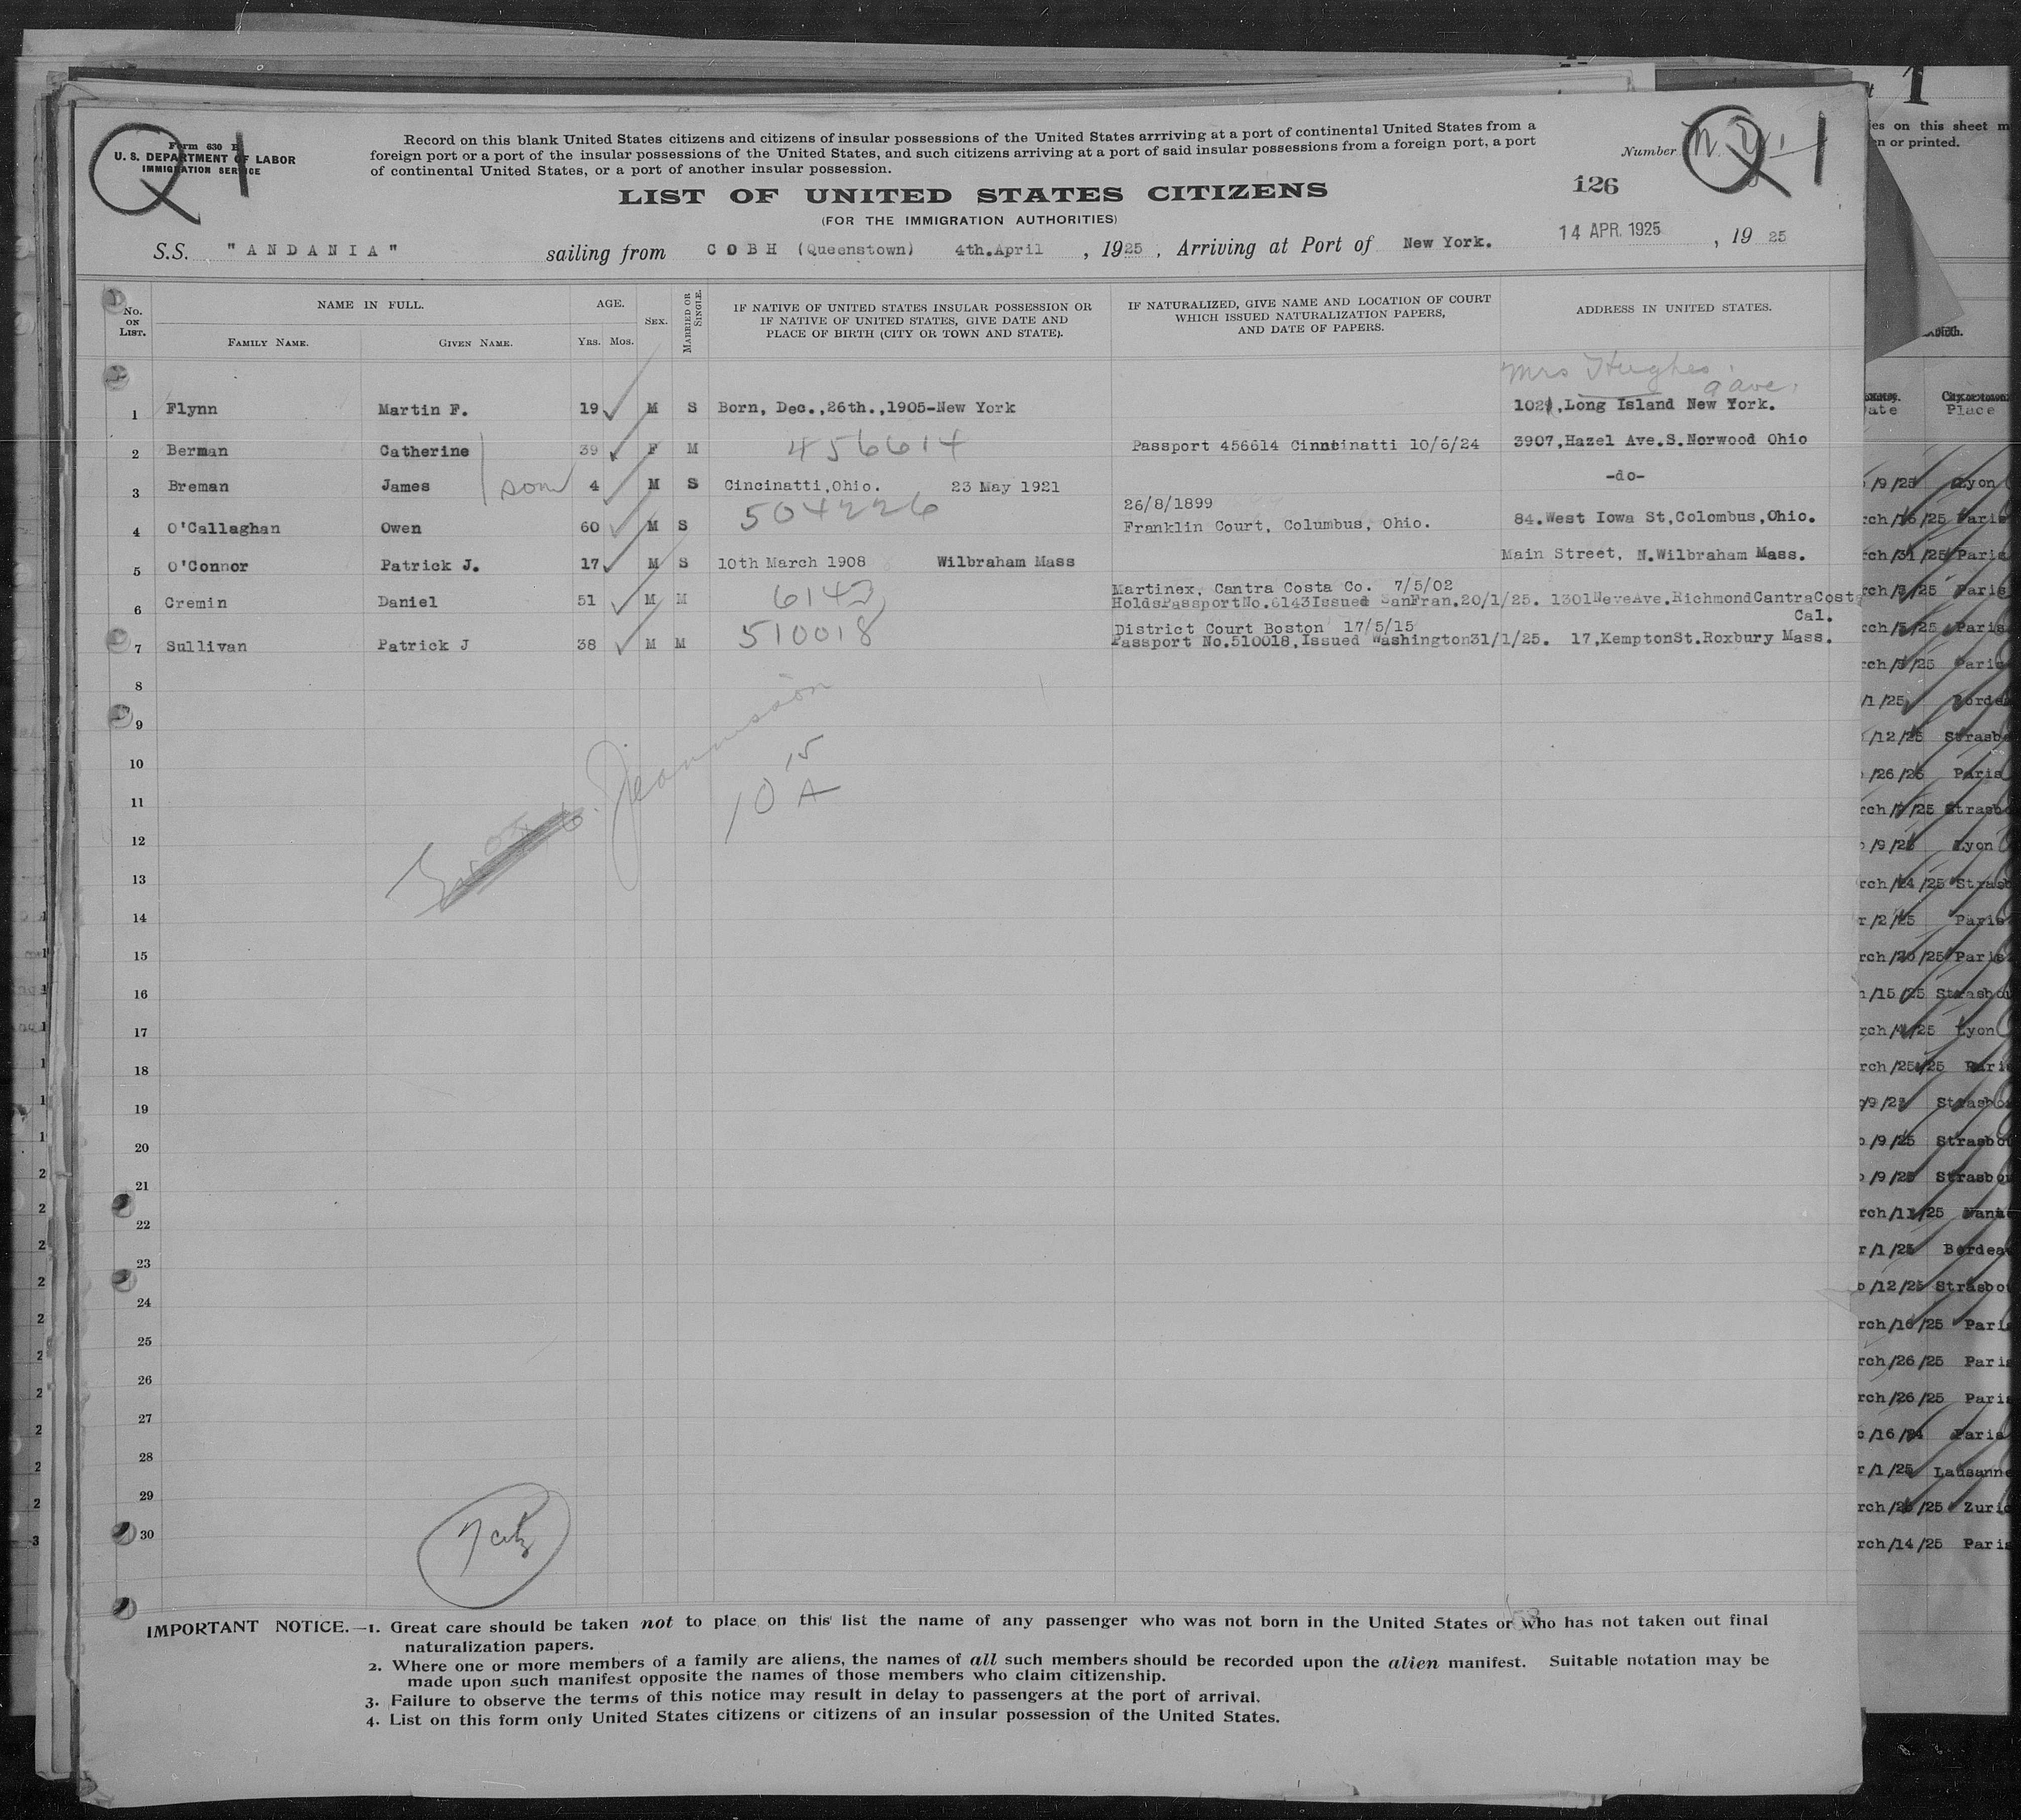 Form 630 B
U. S. DEPARTMENT OF LABOR
IMMIGRATION SERVICE
Q 1
Record on this blank United States citizens and citizens of insular possessions of the United States arrriving at a port of continental United States from a
foreign port or a port of the insular possessions of the United States, and such citizens arriving at a port of said insular possessions from a foreign port, a port
of continental United States, or a port of another insular possession.
Number
Q 1
126
LIST OF UNITED STATES CITIZENS
(FOR THE IMMIGRATION AUTHORITIES)
S.S. "ANDANIA" sailing from COBH (Queenstown) 4th.April , 1925 , Arriving at Port of New York. 14 APR. 1925 , 19 25
No. ON LIST. NAME IN FULL. FAMILY NAME. GIVEN NAME. AGE. Yrs. Mos. SEX. MARRIED OR SINGLE. IF NATIVE OF UNITED STATES INSULAR POSSESSION OR IF NATIVE OF UNITED STATES, GIVE DATE AND PLACE OF BIRTH (CITY OR TOWN AND STATE). IF NATURALIZED, GIVE NAME AND LOCATION OF COURT WHICH ISSUED NATURALIZATION PAPERS, AND DATE OF PAPERS. ADDRESS IN UNITED STATES.
Mrs Hughes
9 ave.
1 Flynn Martin F. 19 M S Born, Dec.,26th.,1905-New York 1021,Long Island New York.
2 Berman Catherine 39 F M 456614 Passport 456614 Cinncinatti 10/6/24 3907,Hazel Ave.S.Norwood Ohio
3 Breman James son 4 M S Cincinatti,Ohio. 23 May 1921 -do-
26/8/1899
4 O'Callaghan Owen 60 M S 504226 Franklin Court, Columbus, Ohio. 84.West Iowa St,Colombus,Ohio.
5 O'Connor Patrick J. 17 M S 10th March 1908 Wilbraham Mass Main Street, N.Wilbraham Mass.
Martinex, Cantra Costa Co. 7/5/02
6 Cremin Daniel 51 M M 6143 HoldsPassportNo.6143Issued SanFran.20/1/25. 1301NeveAve.RichmondCantraCosta
Cal.
District Court Boston 17/5/15
7 Sullivan Patrick J 38 M M 510018 Passport No.510018,Issued Washington31/1/25. 17,KemptonSt.Roxbury Mass.
8
9
10
11
12
13
14
15
16
17
18
19
20
21
22
23
24
25
26
27
28
29
30
10 15 A
IMPORTANT NOTICE.—1. Great care should be taken not to place on this list the name of any passenger who was not born in the United States or who has not taken out final
naturalization papers.
2. Where one or more members of a family are aliens, the names of all such members should be recorded upon the alien manifest. Suitable notation may be
made upon such manifest opposite the names of those members who claim citizenship.
3. Failure to observe the terms of this notice may result in delay to passengers at the port of arrival.
4. List on this form only United States citizens or citizens of an insular possession of the United States.